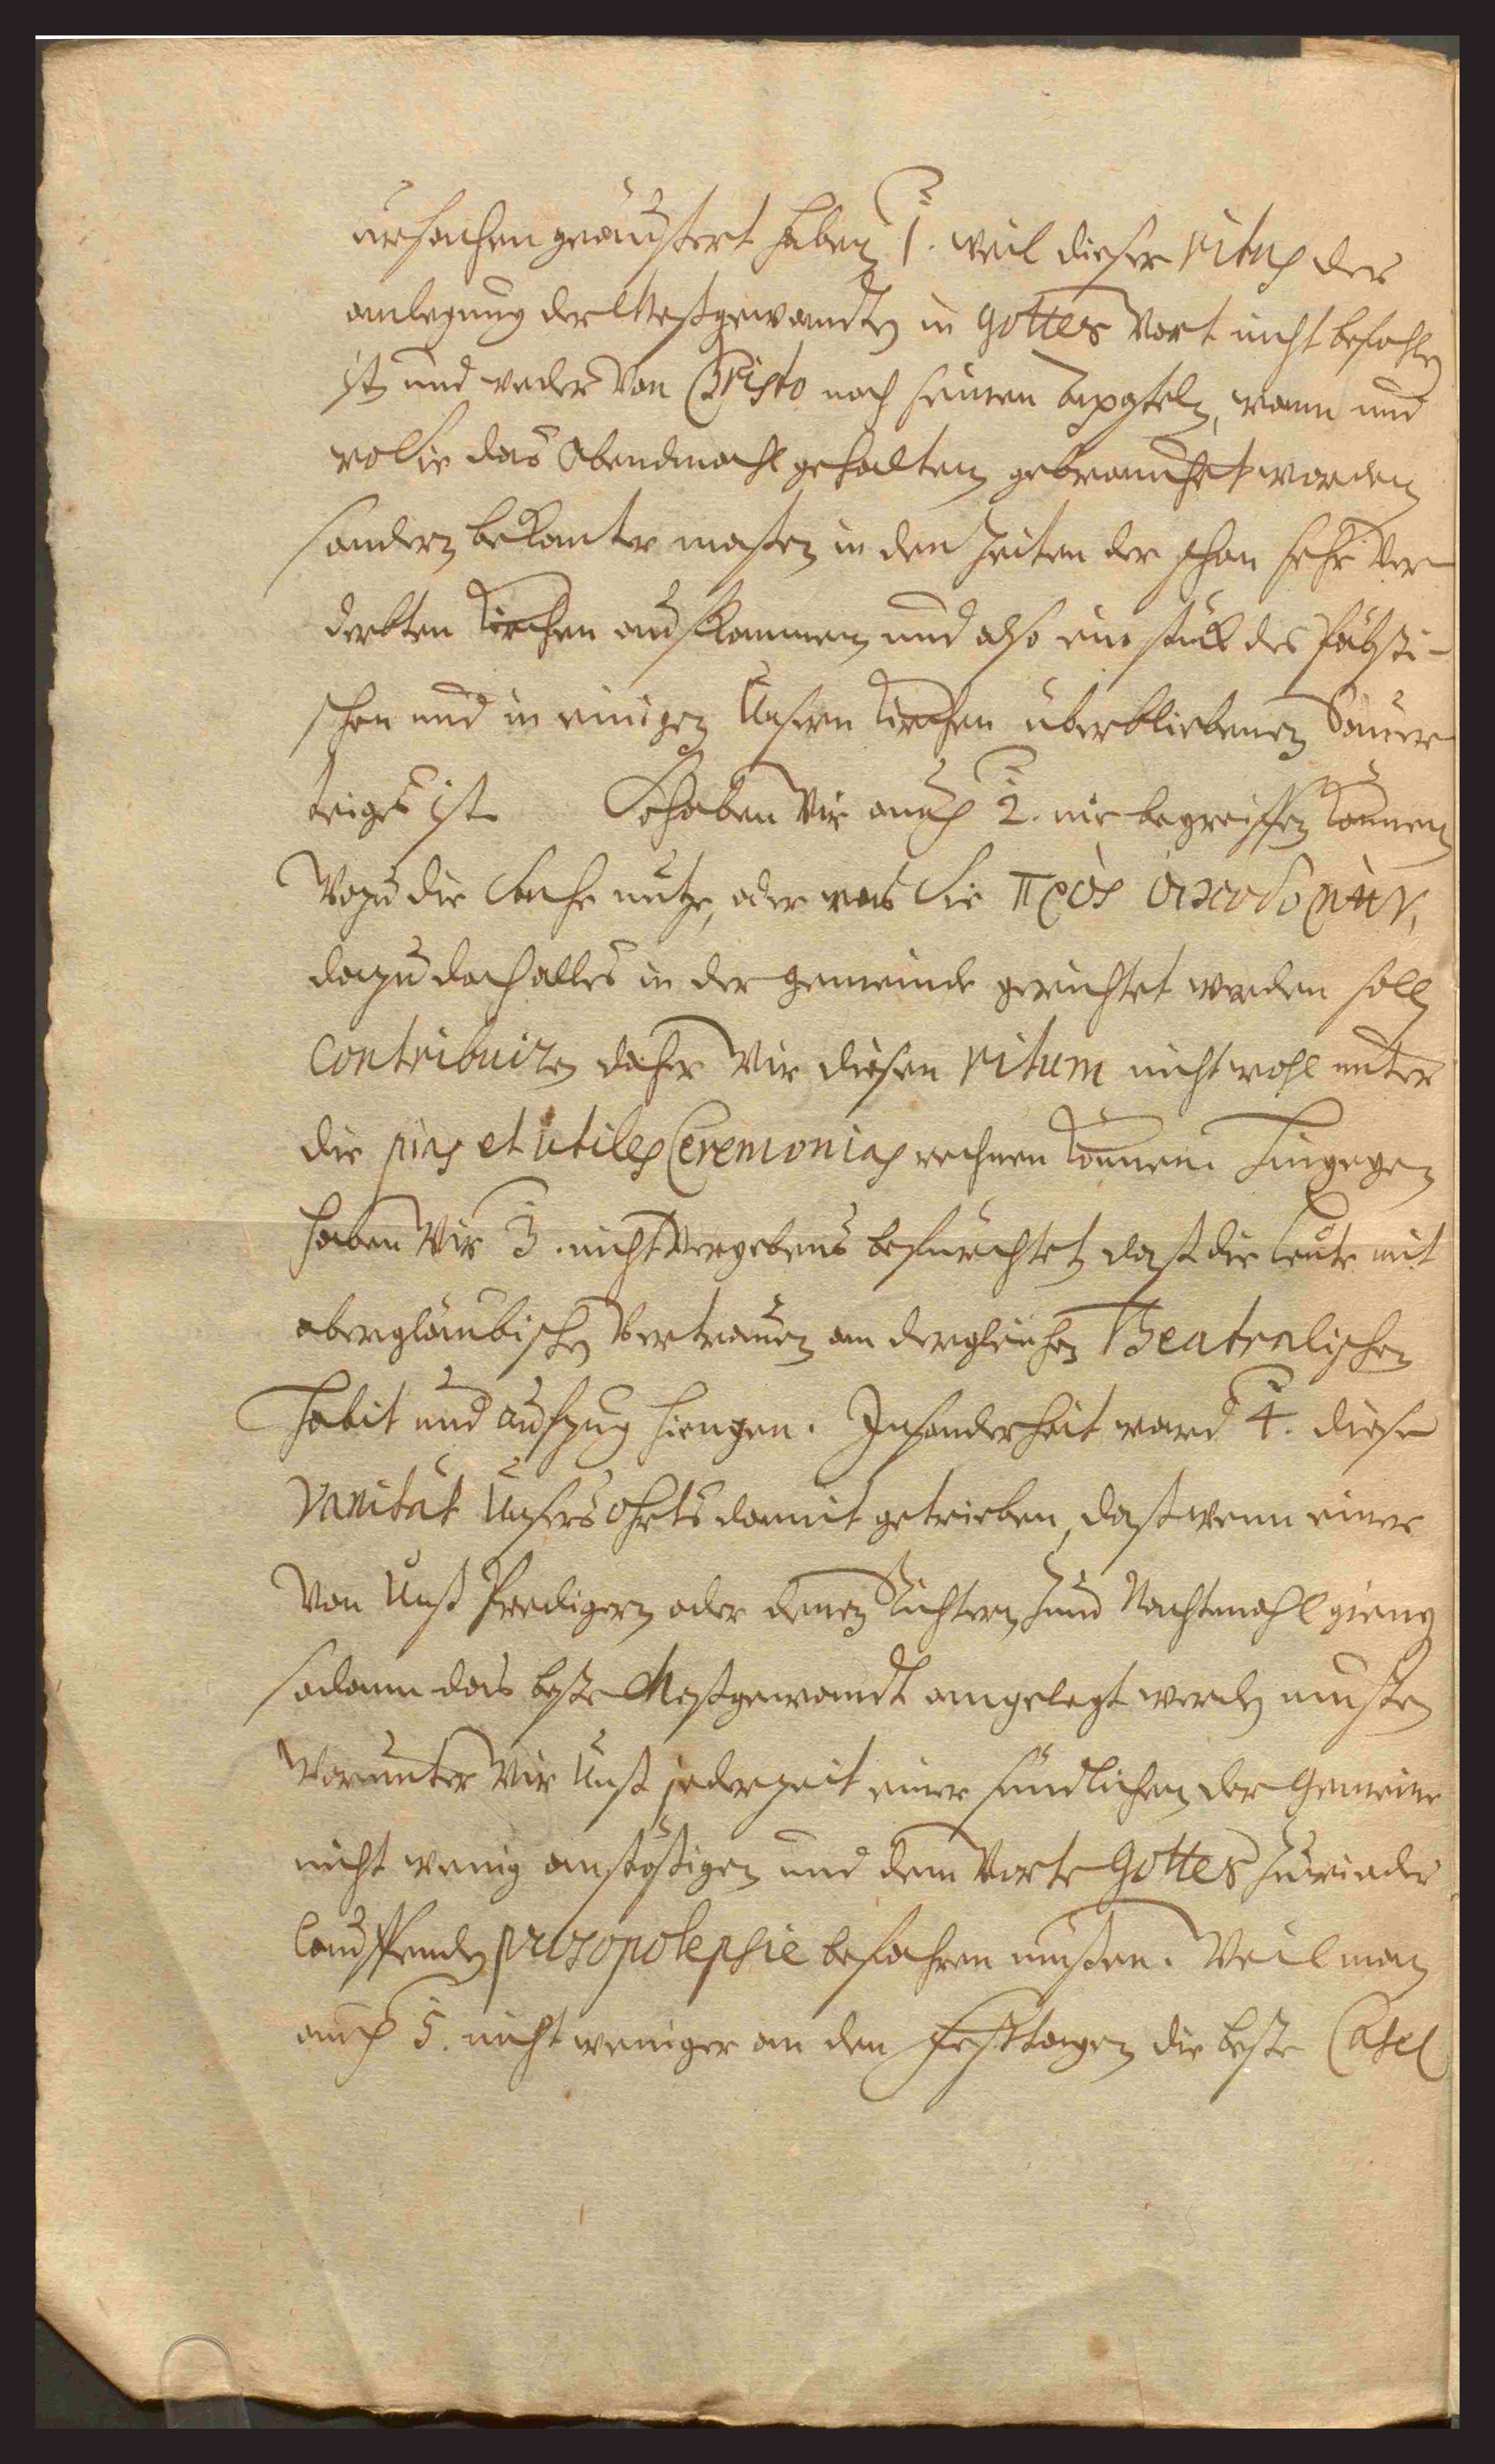 ursachen geäußert haben 1. weil dieser ritus der
anlegung der Meßgewandten in Gottes Wort nicht befohlen
ist und weder von Christo noch seinen Aposteln, wann und
wo Sie das Abendmahl gehalten gebrauchet worden
sondern bekanter maßen in den Zeiten der schon sehr ver
derbten Kirchen aufkommen und also ein stück des Päbsti-
schen und in einigen Unsern Kirchen überbliebenen Sauer
teiges ist. So haben Wir auch 2. nie begreiffen können
Wozu die Sache nutze, oder was Sie πρὸς οἰκοδομὴν,
dazu doch alles in der gemeinde gerichtet werden soll
contribuire daher Wir diesen ritum nicht wohl unter
die pias et utiles Ceremonias rechnen können. Hingegen
haben Wir 3. nicht vergebens befürchtet daß die Leute mit
abergläubischen Vertrauen an dergleichen Theatralischen
habit und aufzug hiengen. Insonderheit ward 4. diese
Vanität Unsers Ohrts damit getrieben, daß wenn einer
Von Unß Predigern oder denen Richtern zum Nachtmahl gieng
sodann das beste Meßgewandt angelegt werden muste
Worunter Wir Unß jederzeit einer sündlichen der Gemeine
nicht wenig anstößigen und dem Worte Gottes zuwieder
lauffenden prosopolepsie befahren mußten. Weil man
auch 5. nicht weniger an den Festtagen die beste Casel